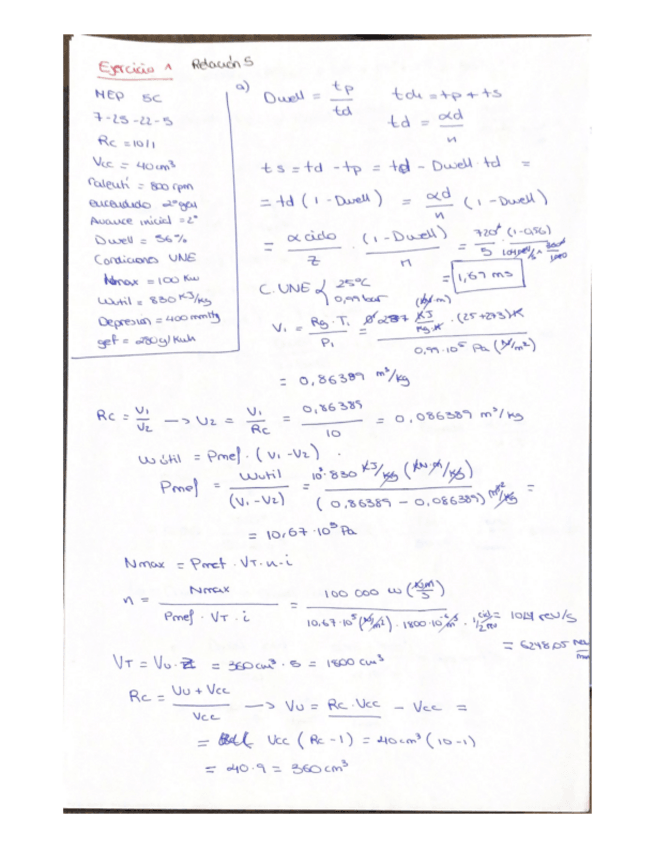 Ejercicio 1 Relación 5
MEP 5C
7-25-22-5
Rc = 10/1
Vcc = 40 cm³
ralentí = 800 rpm
encendido 2ª gen
Avance inicial = 2°
Dwell = 56%
Condiciones UNE
Nmax = 100 Kw
Wutil = 830 KJ/kg
Depresion = 400 mmHg
gef = 280 g/Kwh
a) Dwell = tp/td td = tp + ts
td = αd/n
ts = td - tp = td - Dwell · td =
= td (1 - Dwell) = αd/n (1 - Dwell)
= αciclo/Z · (1 - Dwell)/n = 720°/5 (1-0,56)
= 1,67 ms
C. UNE { 25°C
0,99 bar
V₁ = Rg · T₁/P₁ = 0'287 KJ/Kg·K · (25+273)K / 0,99·10⁵ Pa (N/m²)
= 0,86389 m³/kg
Rc = V₁/V₂ → V₂ = V₁/Rc = 0,86389/10 = 0,086389 m³/kg
Wútil = Pmef · (V₁ - V₂) ·
Pmef = Wutil/(V₁ - V₂) = 10³·830 KJ/kg (KN·m/kg) / (0,86389 - 0,086389) m³/kg =
= 10,67 · 10⁵ Pa
Nmax = Pmef · VT · n · i
n = Nmax/(Pmef · VT · i) = 100 000 w / 10,67·10⁵ (N/m²) · 1800·10⁻⁶ m³ · 1/2 = 104 rev/s
= 6248,05
VT = Vu · Z = 360 cm³ · 5 = 1800 cm³
Rc = (Vu + Vcc)/Vcc → Vu = Rc · Vcc - Vcc =
= Vcc (Rc - 1) = 40 cm³ (10 - 1)
= 40 · 9 = 360 cm³